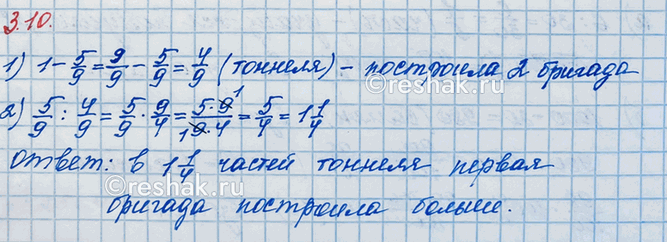 3.10.
1) 1 - 5/9 = 9/9 - 5/9 = 4/9 (тоннеля) - построила 2 бригада
2) 5/9 : 4/9 = 5/9 · 9/4 = 5·9/9·4 = 5/4 = 1 1/4
Ответ: в 1 1/4 частей тоннеля первая
бригада построила больше.
©reshak.ru